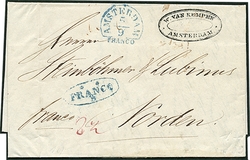 AMSTERDAM
5
9
FRANCO
VAN KEMPEN
AMSTERDAM
Herren
& Lubinus
FRANCO
franco
Norden